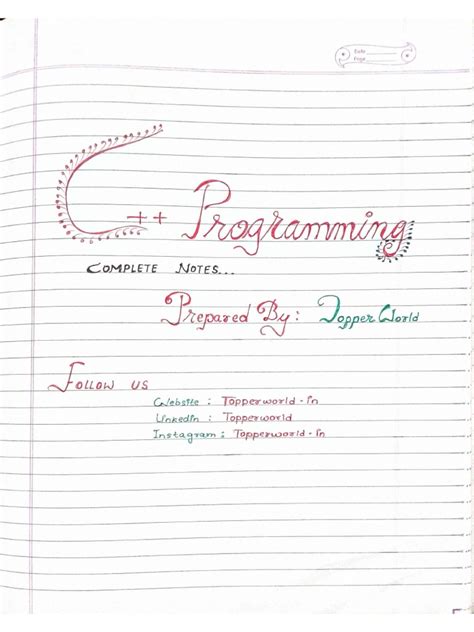 Date
Page
C++ Programming
COMPLETE NOTES...
Prepared By: Topper World
Follow us
Website : Topperworld.in
Linkedin : Topperworld
Instagram : Topperworld.in